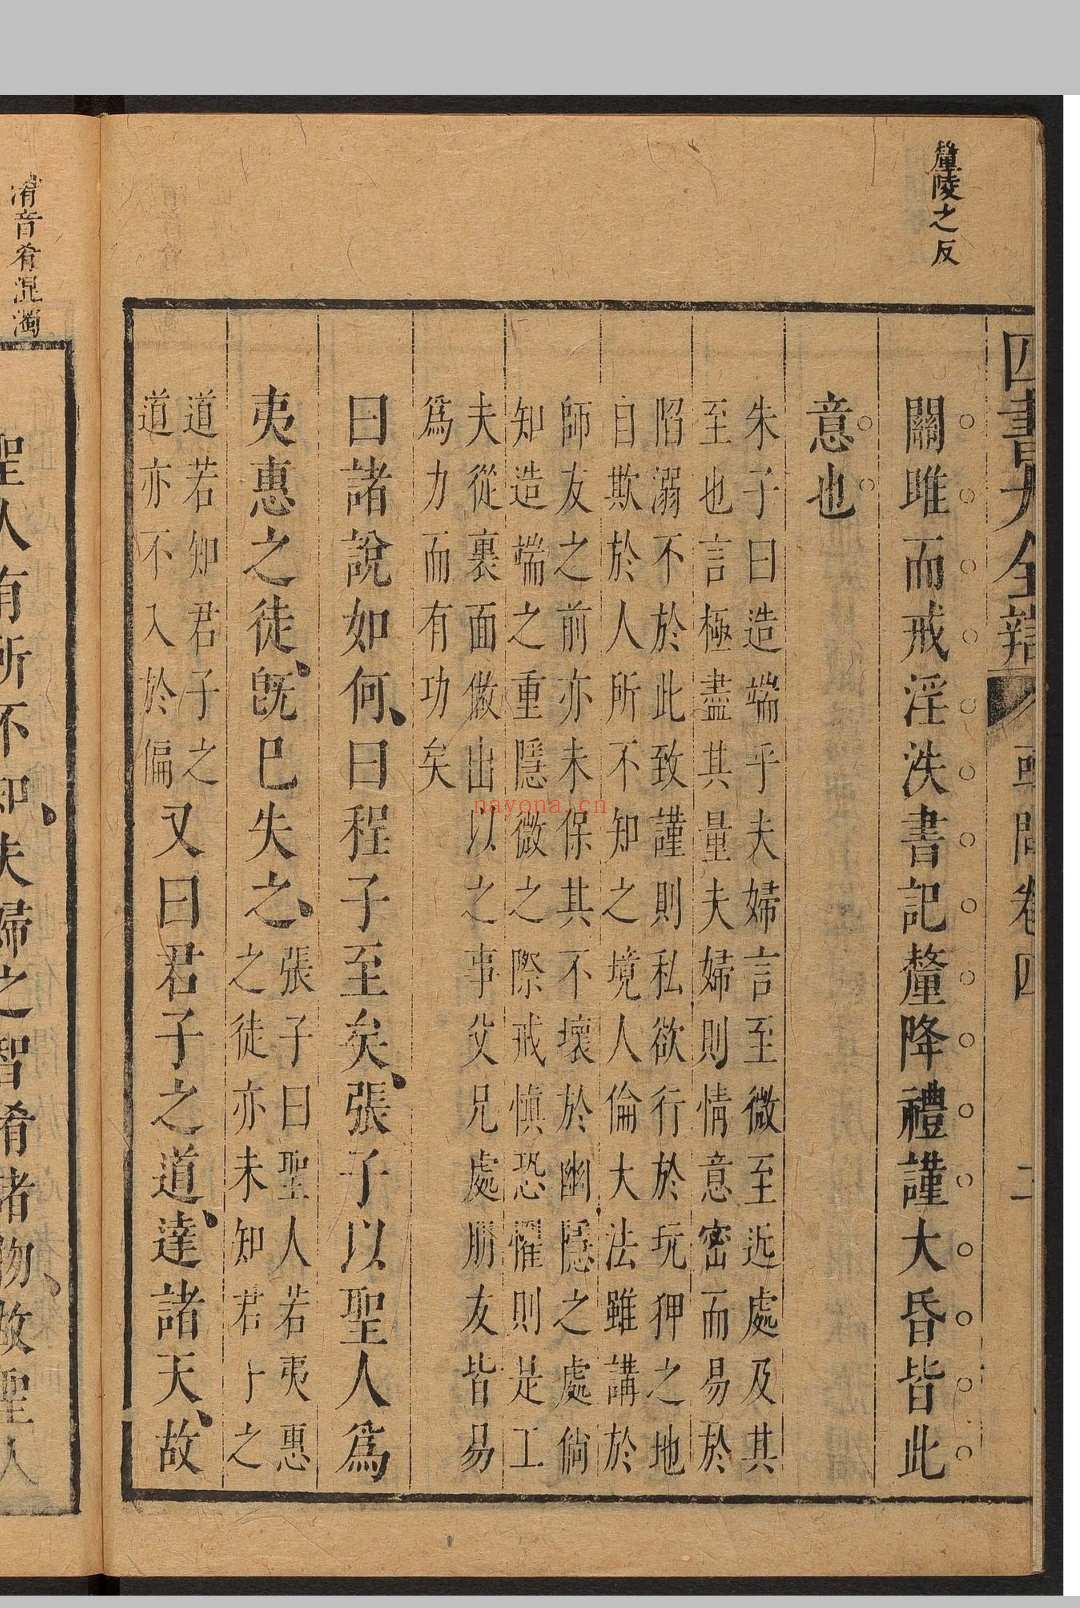 釐陵之反
四書大全辯 或問卷四 二
關雎而戒淫泆書記釐降禮謹大昏皆此
意也
朱子曰造端乎夫婦言至微至近處及其
至也言極盡其量夫婦則情意密而易於
陷溺不於此致謹則私欲行於玩狎之地
自欺於人所不知之境人倫大法雖講於
師友之前亦未保其不壞於幽隱之處倘
知造端之重隱微之際戒慎恐懼則是工
夫從裏面做出以之事父兄處朋友皆易
為力而有功矣
曰諸說如何曰程子至矣張子以聖人為
夷惠之徒旣已失之張子曰聖人若夷惠
之徒亦未知君子之
道若知君子之
道亦不入於偏又曰君子之道達諸天故
聖人有所不知夫婦之智淆諸物故聖人
淆音肴混濁
nayona.cn